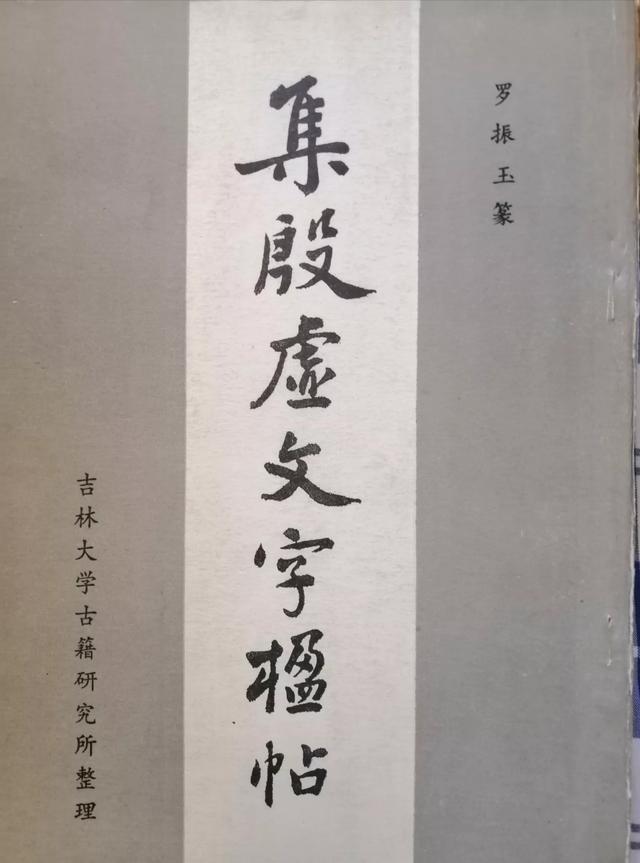 罗振玉篆
集殷虚文字楹帖
吉林大学古籍研究所整理